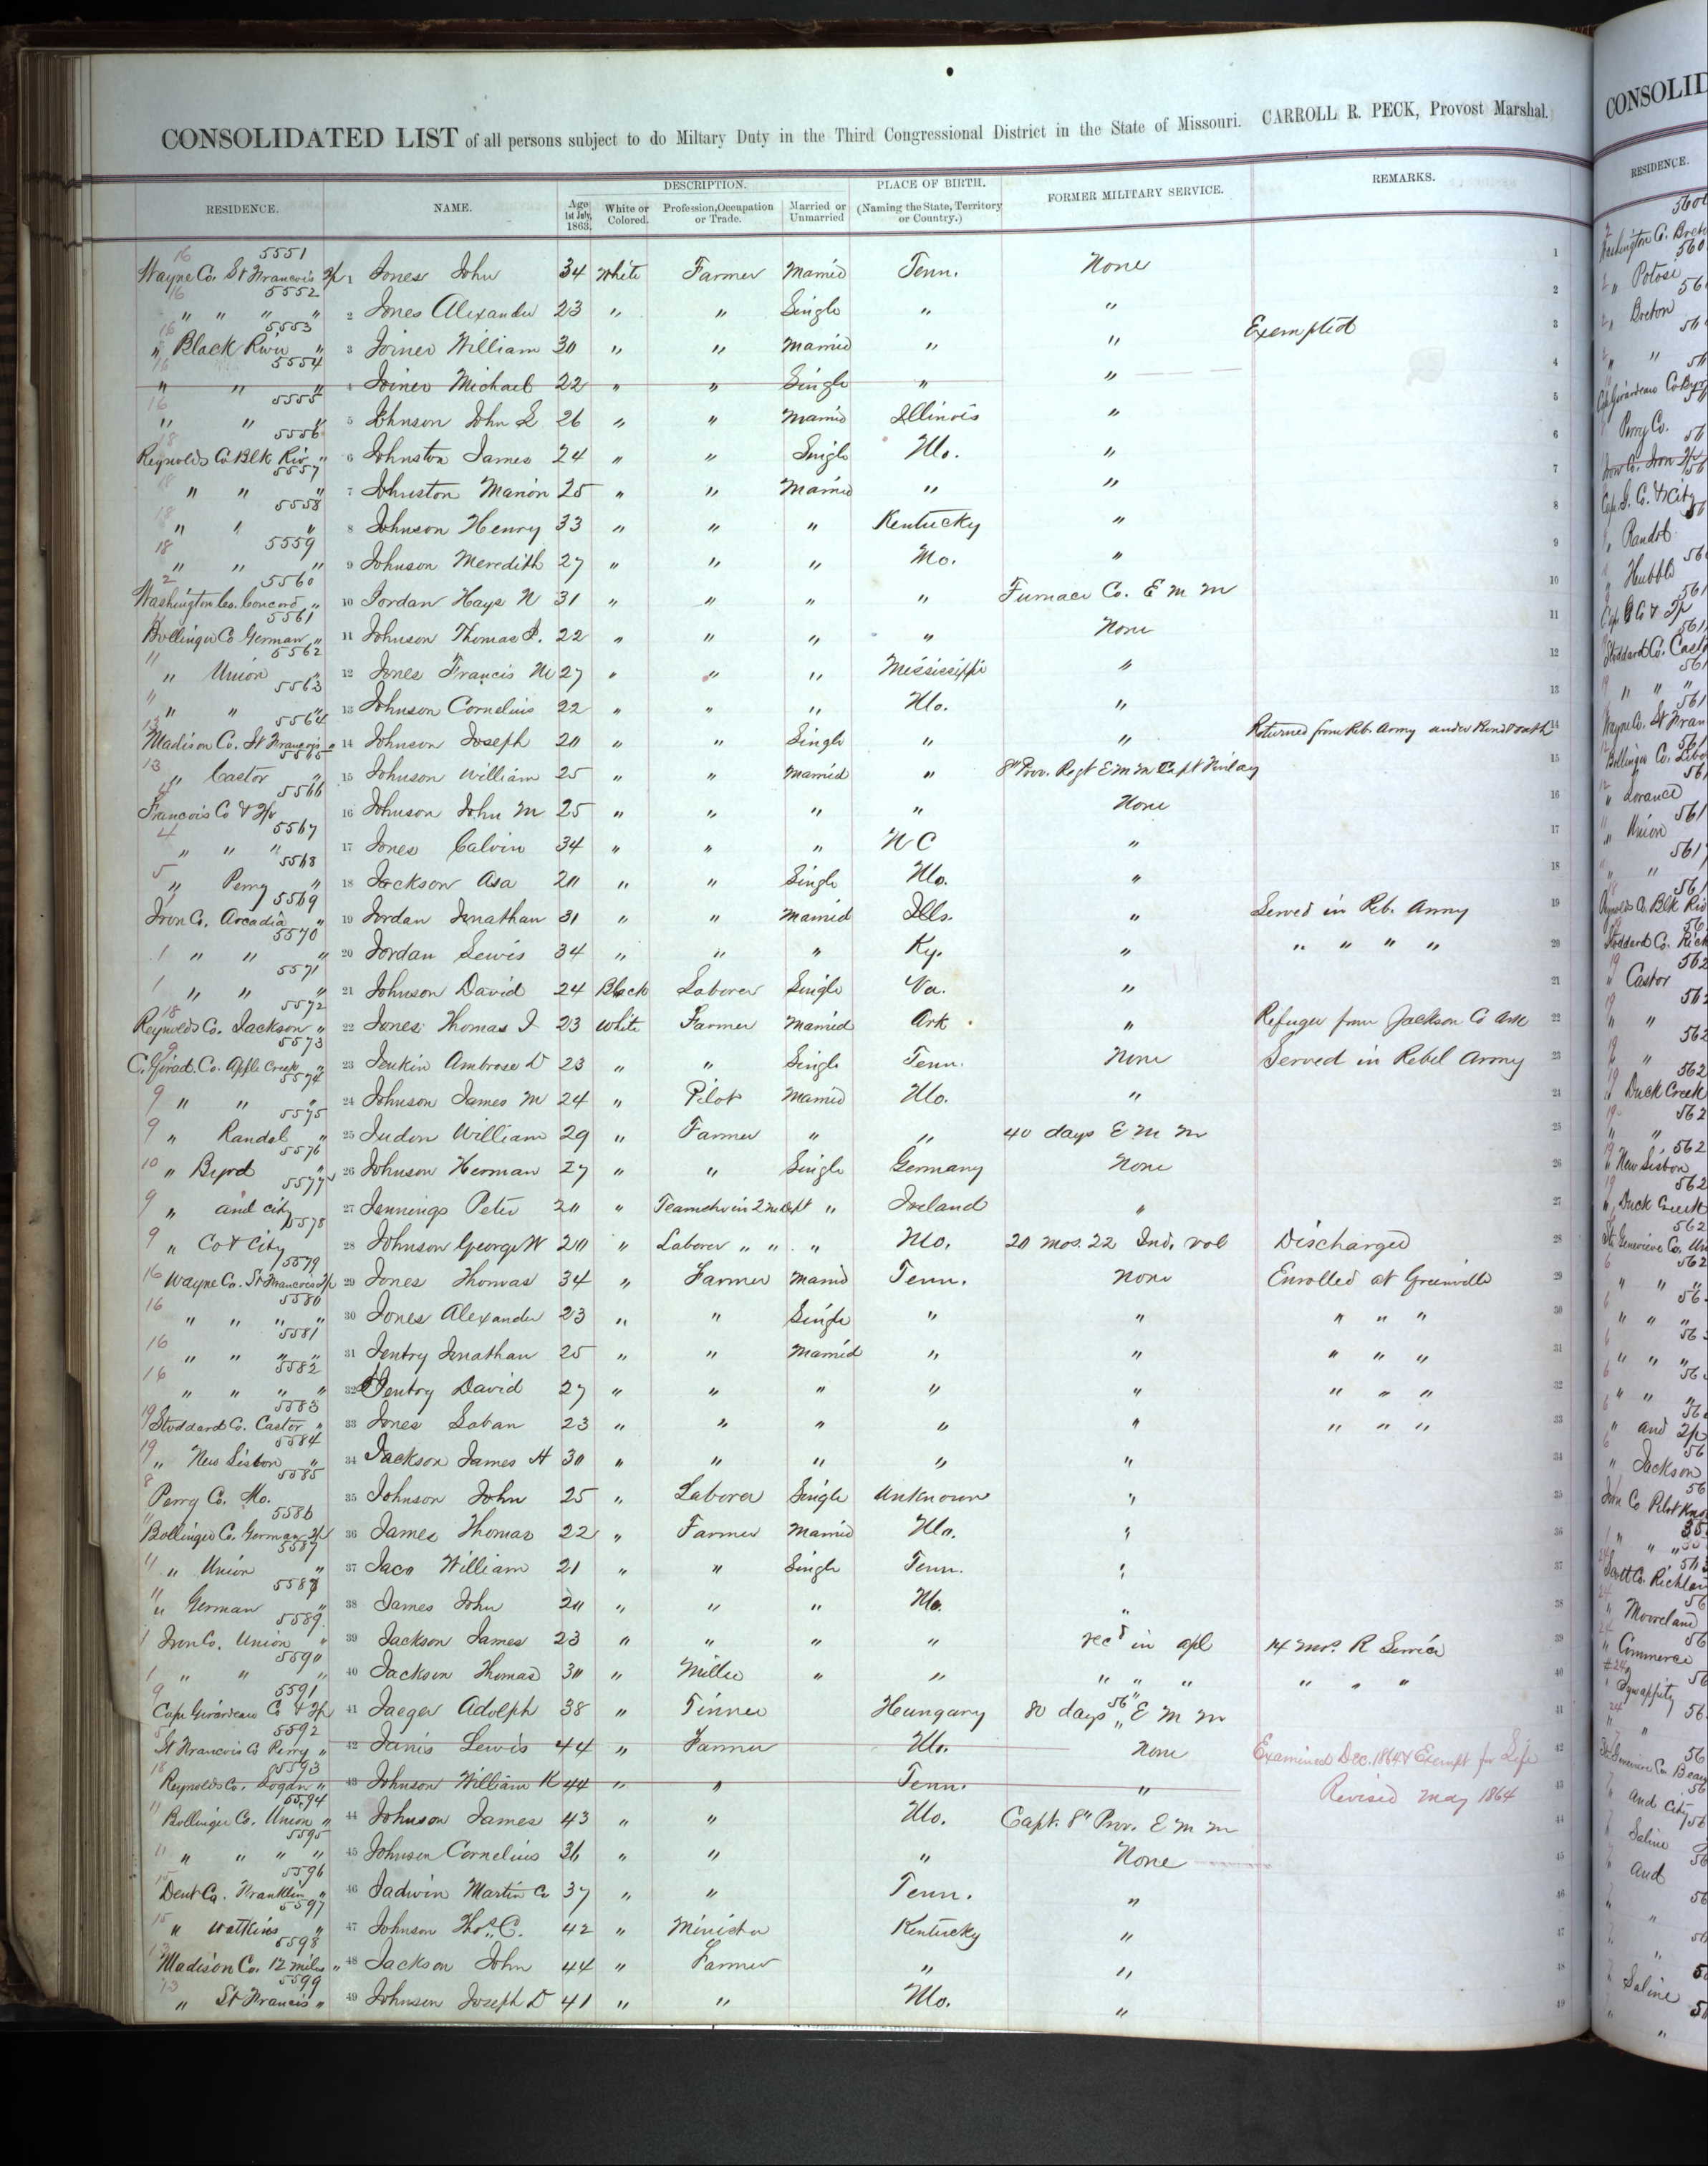 CONSOLIDATED LIST of all persons subject to do Miltary Duty in the Third Congressional District in the State of Missouri. CARROLL R. PECK, Provost Marshal.
RESIDENCE. NAME. DESCRIPTION. PLACE OF BIRTH. FORMER MILITARY SERVICE. REMARKS.
Age 1st July, 1863. White or Colored. Profession, Occupation or Trade. Married or Unmarried (Naming the State, Territory or Country.)
16 5551
Wayne Co. St Francois Tp 1 Jones John 34 White Farmer Married Tenn. None 1
16 5552
" " " " 2 Jones Alexander 23 " " Single " " 2
16 5553
" Black River " 3 Joiner William 30 " " Married " " Exempted 3
16 5554
" " " 4 Joiner Michael 22 " " Single " " 4
16 5555
" " " 5 Johnson John S 26 " " Married Illinois " 5
18 5556
Reynolds Co Blk Riv " 6 Johnston James 24 " " Single Mo. " 6
18 5557
" " " 7 Johnston Marion 25 " " Married " " 7
18 5558
" " " 8 Johnson Henry 33 " " " Kentucky " 8
18 5559
" " " 9 Johnson Meredith 27 " " " Mo. " 9
2 5560
Washington Co. Concord " 10 Jordan Hays N 31 " " " " Furnace Co. E M M 10
5561
Bollinger Co German " 11 Johnson Thomas J. 22 " " " " None 11
11 5562
" Union " 12 Jones Francis M 27 " " " Mississippi " 12
11 5563
" " " 13 Johnson Cornelius 22 " " " Mo. " 13
13 5564
Madison Co. St Francois " 14 Johnson Joseph 20 " " Single " " Returned from Reb. Army under Bond & oath 14
13 5565
" Castor " 15 Johnson William 25 " " Married " 8" Prov. Regt E M M Capt Finlay 15
5566
Francois Co & Tp 16 Johnson John M 25 " " " " None 16
4 5567
" " " 17 Jones Calvin 34 " " " N C " 17
5 5568
" Perry " 18 Jackson Asa 20 " " Single Mo. " 18
1 5569
Iron Co. Arcadia " 19 Jordan Jonathan 31 " " Married Ills. " Served in Reb. Army 19
1 5570
" " " 20 Jordan Lewis 34 " " " Ky. " " " " " 20
1 5571
" " " 21 Johnson David 24 Black Laborer Single Va. " 21
18 5572
Reynolds Co. Jackson " 22 Jones Thomas J 23 White Farmer Married Ark. " Refugee from Jackson Co Ark 22
9 5573
C. Girad. Co. Apple Creek " 23 Jenkin Ambrose D 23 " " Single Tenn. None Served in Rebel Army 23
9 5574
" " " 24 Johnson James M 24 " Pilot Married Mo. " 24
9 5575
" Randel " 25 Judon William 29 " Farmer " " 40 days E M M 25
10 5576
" Byrd " 26 Johnson Herman 27 " " Single Germany None 26
9 5577
" and city 27 Jennings Peter 20 " Teamster in 2 m Dept " Ireland " 27
9 5578
" Co & City 28 Johnson George W 20 " Laborer " " " Mo. 20 mos. 22 Ind. vol Discharged 28
16 5579
Wayne Co. St Francois Tp 29 Jones Thomas 34 " Farmer Married Tenn. None Enrolled at Greenville 29
16 5580
" " " " 30 Jones Alexander 23 " " Single " " " " " 30
16 5581
" " " " 31 Jentry Jonathan 25 " " Married " " " " " 31
16 5582
" " " " 32 Gentry David 27 " " " " " " " " 32
19 5583
Stoddard Co. Castor " 33 Jones Laban 23 " " " " " " " " 33
19 5584
" New Lisbon " 34 Jackson James H 30 " " " " " 34
8 5585
Perry Co. Mo. 35 Johnson John 25 " Laborer Single Unknown " 35
11 5586
Bollinger Co. German Tp 36 James Thomas 22 " Farmer Married Mo. " 36
11 5587
" Union " 37 Jaco William 21 " " Single Tenn. " 37
11 5588
" German " 38 James John 20 " " " Mo. " 38
1 5589
Iron Co. Union " 39 Jackson James 23 " " " " rec'd in apl 14 mos. R Service 39
1 5590
" " " 40 Jackson Thomas 30 " Miller " " " " " " " " 40
9 5591
Cape Girardeau Co & Tp 41 Jaeger Adolph 38 " Tinner Hungary 80 days 56" E M M 41
5 5592
St Francois Co Perry " 42 Janis Lewis 44 " Farmer Mo. None Examined Dec. 1864 & Exempt for Life 42
18 5593
Reynolds Co. Logan " 43 Johnson William K 44 " " Tenn. " Revised May 1864 43
11 5594
Bollinger Co. Union " 44 Johnson James 43 " " Mo. Capt. 8" Prov. E M M 44
11 5595
" " " " 45 Johnson Cornelius 36 " " " None 45
15 5596
Dent Co. Franklin " 46 Jadwin Martin C 37 " " Tenn. " 46
15 5597
" Watkins " 47 Johnson Thos. C. 42 " Minister Kentucky " 47
13 5598
Madison Co. 12 miles " 48 Jackson John 44 " Farmer " " 48
13 5599
" St Francis " 49 Johnson Joseph D 41 " " Mo. " 49
CONSOLID
RESIDENCE.
" Potosi
" Breton
Perry Co.
" Randol
" Hubble
" Lorance
" Union
" Castor
" Duck Creek
" New Lisbon
" Duck Creek
" Jackson
" Mooreland
" Commerce
" and City
" Saline
" and
" Saline